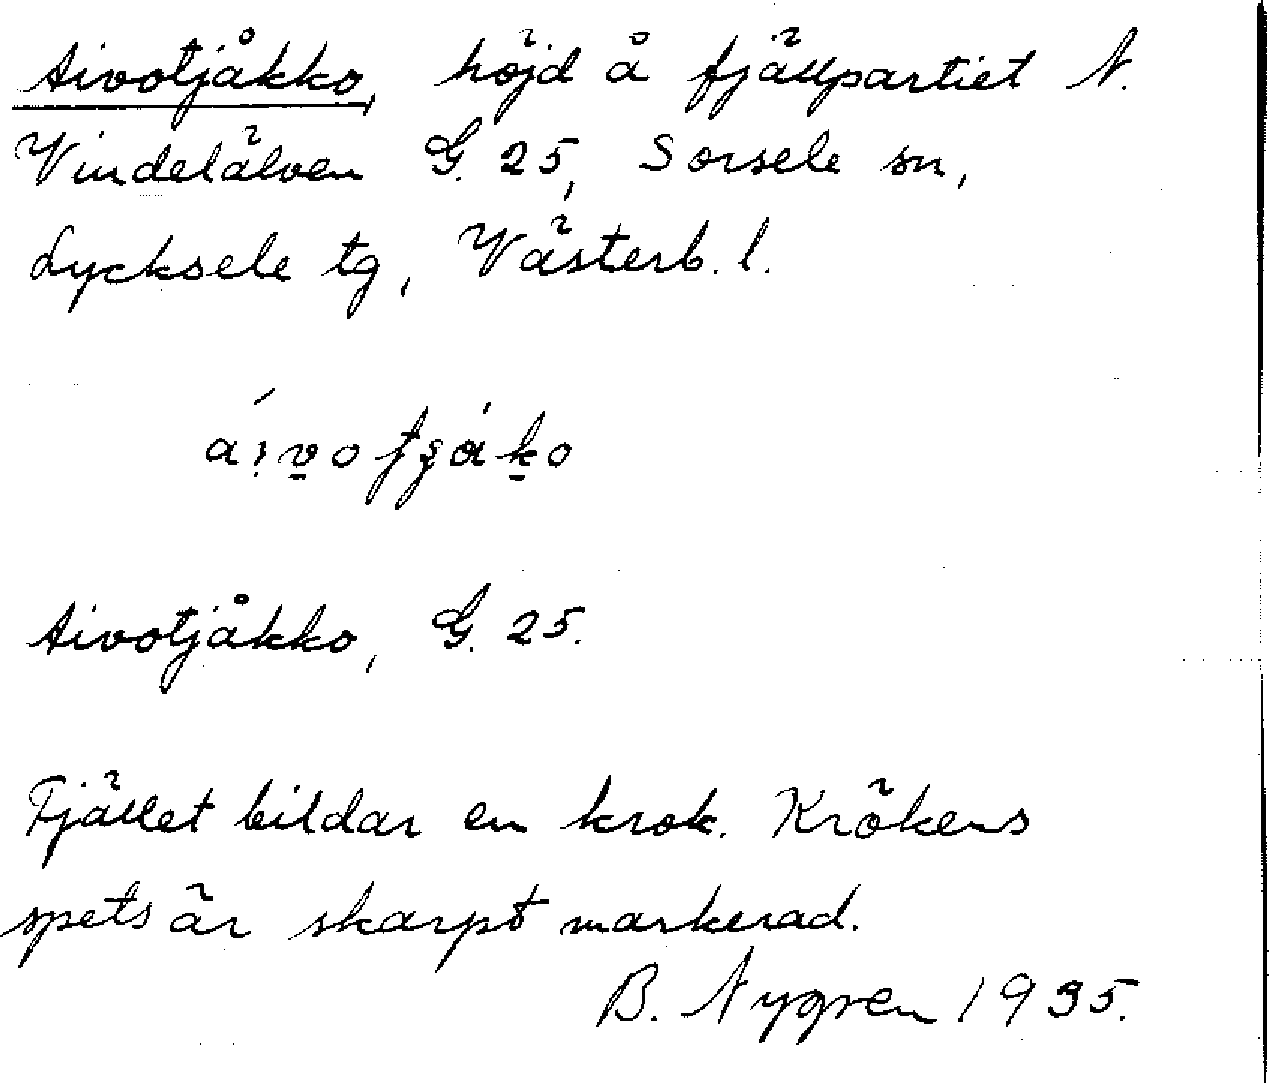 Aivotjåkko, höjd å fjällpartiet N.
Vindelälven G. 25, Sorsele sn,
Lycksele tg, Västerb. l.
Aivotjåkko, G. 25.
Fjället bildar en krok. Krökens
spets är skarpt markerad.
B. Nygren 1935.